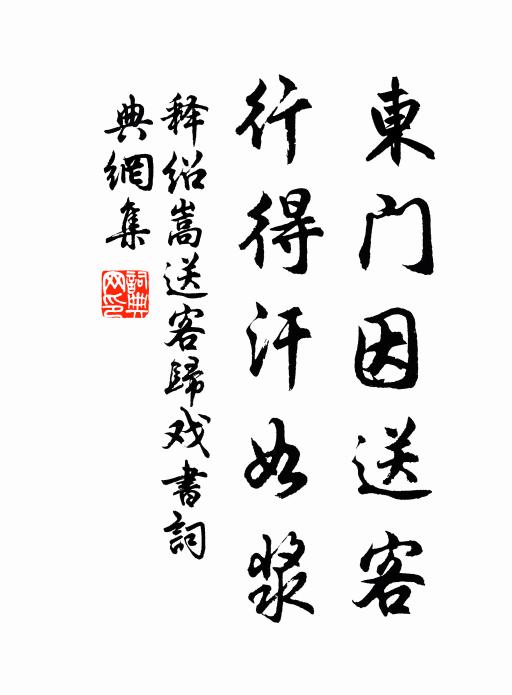 東門因送客
行得汗如漿
释绍嵩送客歸戏書詞
典網集
詞典
网印